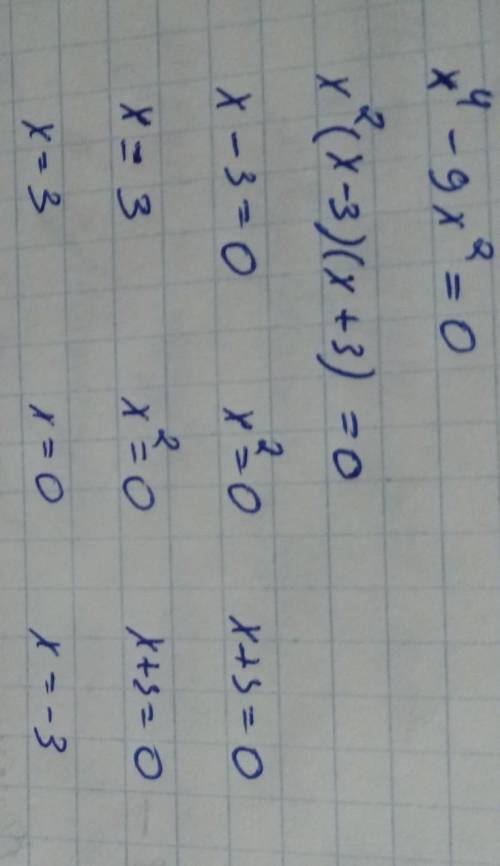 x⁴ - 9x² = 0
x²(x-3)(x+3) = 0
x - 3 = 0 x² = 0 x+3 = 0
x = 3 x² = 0 x+3 = 0
x = 3 x = 0 x = -3